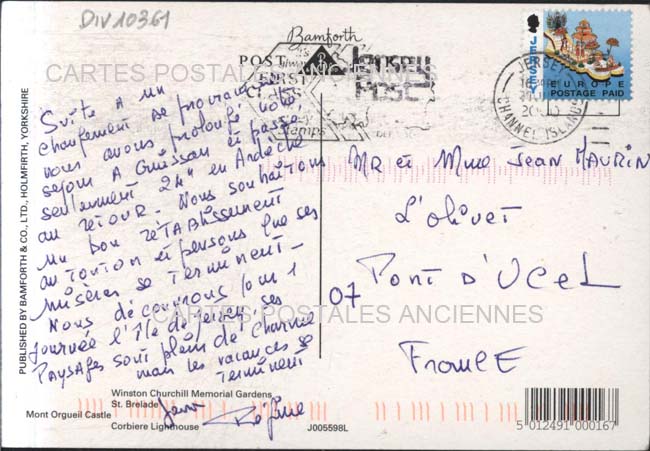 DIV10361
Bamforth
POST
JERSEY
POST
JERSEY
EUROPE
POSTAGE PAID
JERSEY
CHANNEL ISLANDS
CARTES POSTALES ANCIENNES
Suite A un
changement de
nous avons prolongé notre
séjour A Guissan et passé
seulement 24h en Ardèche
au retour. Nous souhaitons
un bon rétablissement
au tonton et pensons que ses
misères se terminent -
Nous découvrons pour 1
journée l'Île de Jersey, ses
Paysages sont plein de charme
mais les vacances se
terminent
Régine
MR et Mme Jean MAURIN
L'olivet
PONT D'UCEL
07
France
CARTES POSTALES ANCIENNES
PUBLISHED BY BAMFORTH & CO., LTD., HOLMFIRTH, YORKSHIRE
Winston Churchill Memorial Gardens,
St. Brelade
Mont Orgueil Castle
Corbiere Lighthouse
J005598L
5 012491 000167